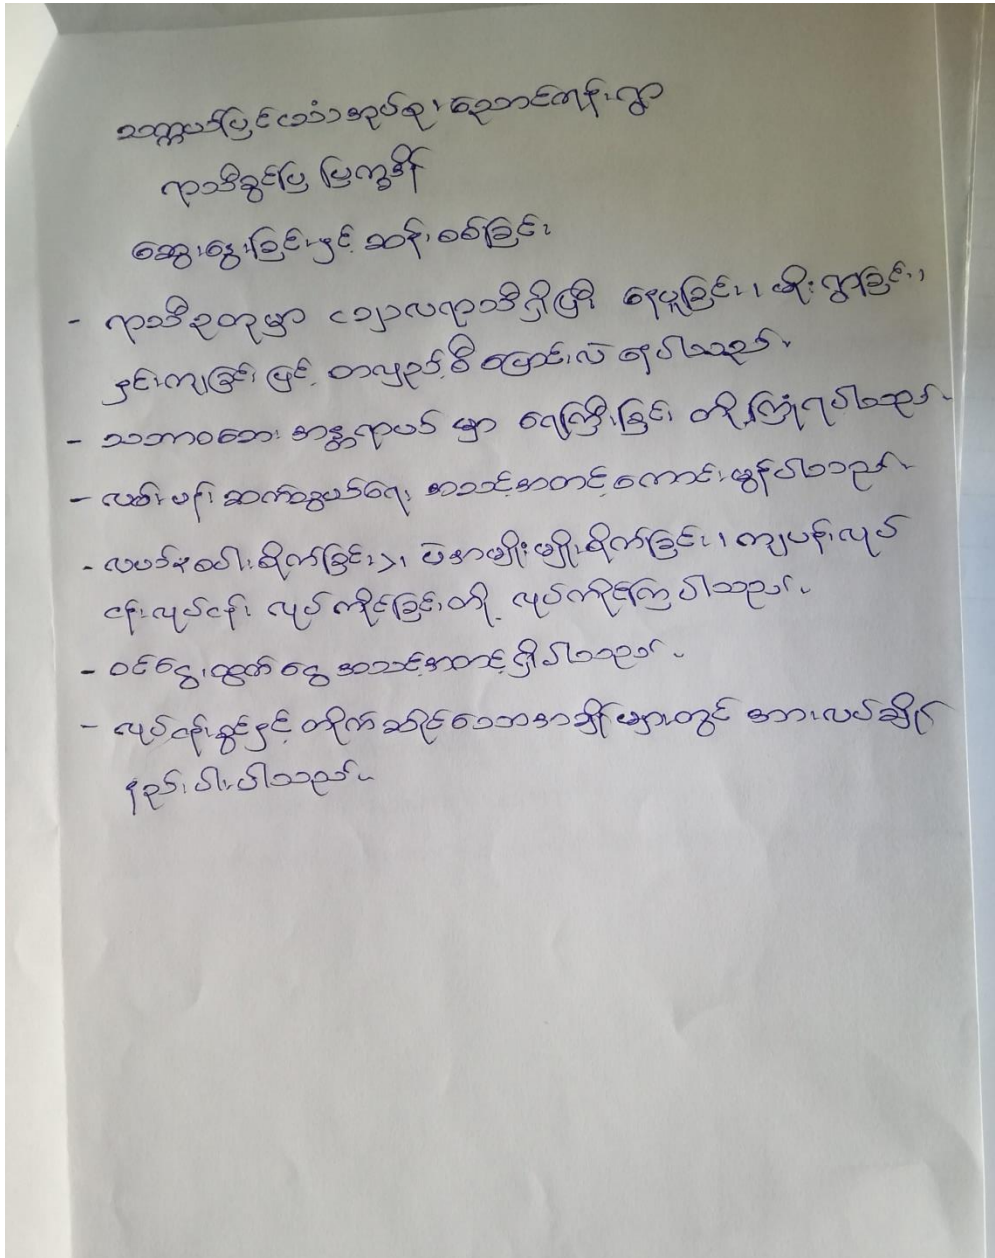 သတ္တပဒ်မြင်သော အုပ်စု၊ ညောင်ကုန်းရွာ
ရာသီခွင်ပြ ပြက္ခဒိန်
ဆွေးနွေးခြင်းနှင့် ဆန်းစစ်ခြင်း
- ရာသီဥတုမှာ ၃မျိုလရာသီရှိပြီး နေပူခြင်း၊ မိုးရွာခြင်း၊
နှင်းကျခြင်း ဖြင့် တလှည့်စီ ပြောင်းလဲ နေပါသည်။
- သဘာဝဘေး အန္တရာယ် မှာ ရေကြီးခြင်း တို့ကြုံရပါသည်။
- လမ်းပန်း ဆက်သွယ်ရေး အသင့်အတင့်ကောင်းမွန်ပါသည်။
- လယ်စပါးစိုက်ခြင်း၊ ပဲအမျိုးမျိုးစိုက်ခြင်း၊ ကျပန်းလုပ်
ငန်းလုပ်ငန်း လုပ်ကိုင်ခြင်းတို့ လုပ်ကိုင်ကြပါသည်။
- ဝင်ငွေ၊ထွက်ငွေ အသင့်အတင့်ရှိပါသည်။
- လုပ်ငန်းခွင်နှင့် တိုက်ဆိုင်သောအချိန်များတွင် အားလပ်ချိန်
နည်းပါးပါသည်။